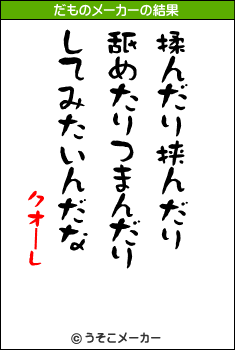 だものメーカーの結果
揉んだり挟んだり
舐めたりつまんだり
してみたいんだな
クオーレ
©うそこメーカー